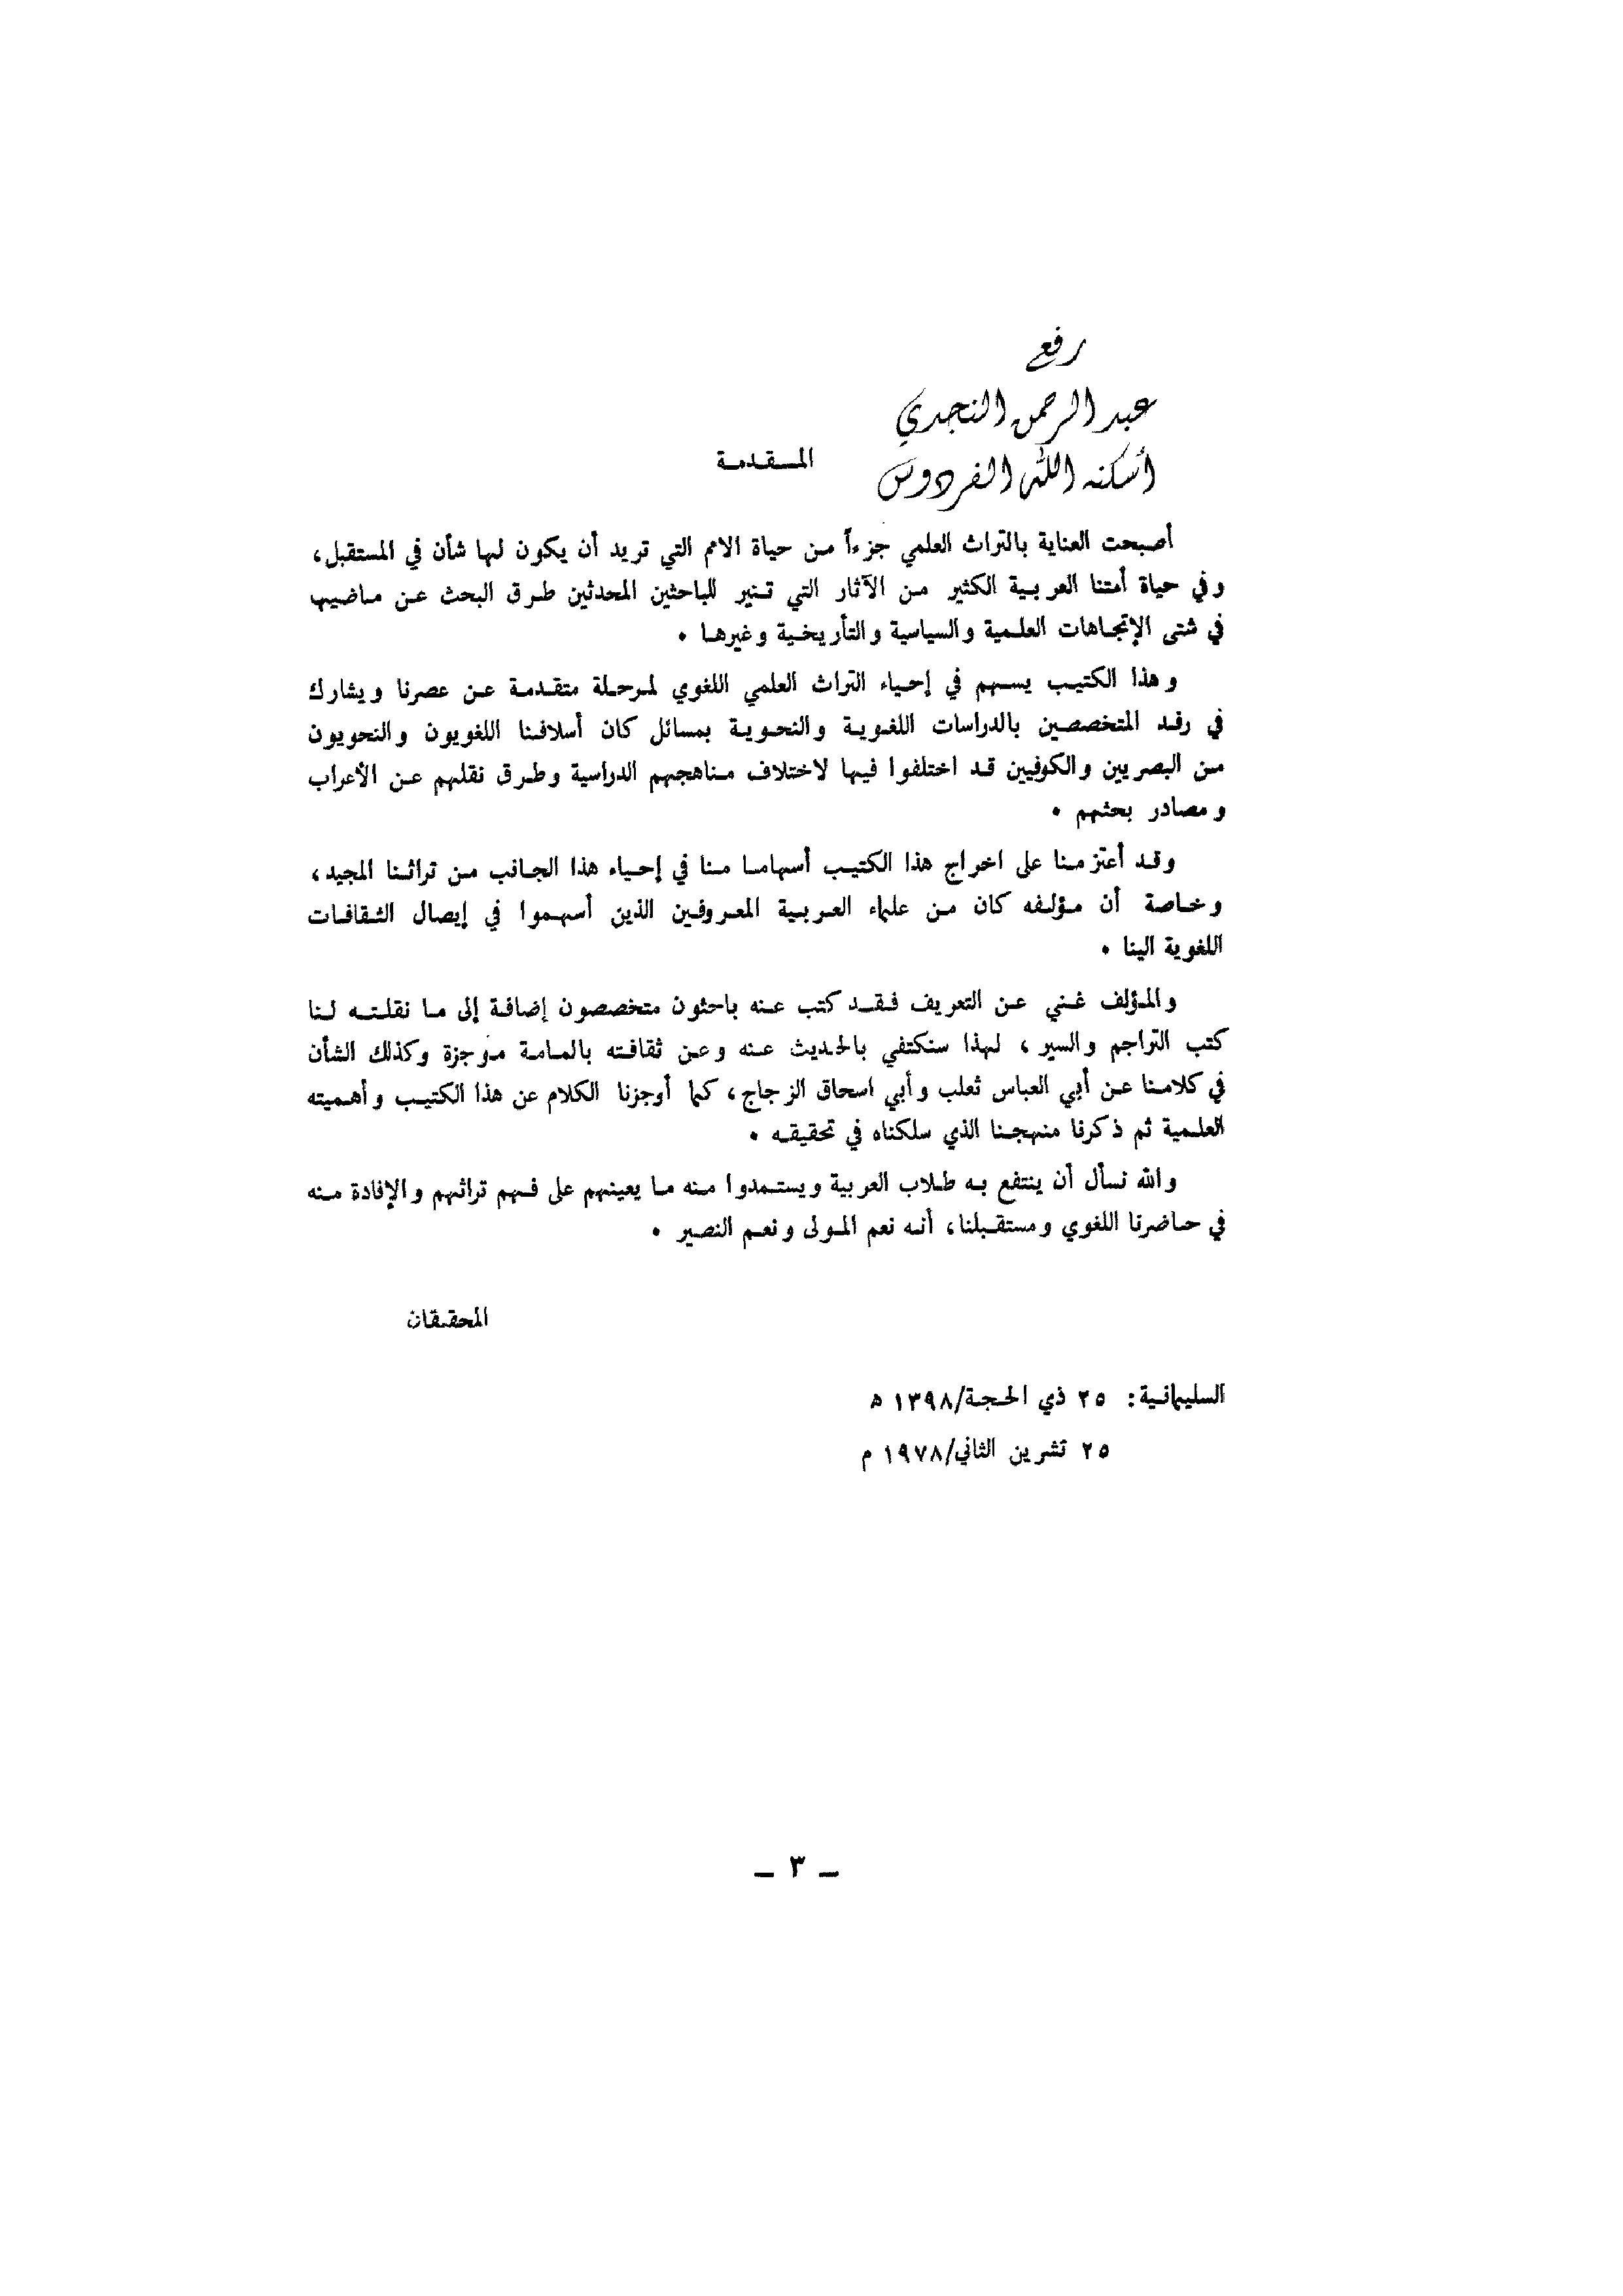 رفع
عبد الرحمن النجدي
أسكنه الله الفردوس
المقدمة
أصبحت العناية بالتراث العلمي جزءاً من حياة الامم التي تريد أن يكون لها شأن في المستقبل،
وفي حياة أمتنا العربية الكثير من الآثار التي تنير للباحثين المحدثين طرق البحث عن ماضيها
في شتى الإتجاهات العلمية والسياسية والتأريخية وغيرها •
وهذا الكتيب يسهم في إحياء التراث العلمي اللغوي لمرحلة متقدمة عن عصرنا ويشارك
في رفد المتخصصين بالدراسات اللغوية والنحوية بمسائل كان أسلافنا اللغويون والنحويون
من البصريين والكوفيين قد اختلفوا فيها لاختلاف مناهجهم الدراسية وطرق نقلهم عن الأعراب
ومصادر بحثهم •
وقد أعتزمنا على اخراج هذا الكتيب أسهاما منا في إحياء هذا الجانب من تراثنا المجيد،
وخاصة أن مؤلفه كان من علماء العربية المعروفين الذين أسهموا في إيصال الثقافات
اللغوية الينا •
والمؤلف غني عن التعريف فقد كتب عنه باحثون متخصصون إضافة إلى ما نقلته لنا
كتب التراجم والسير ، لهذا سنكتفي بالحديث عنه وعن ثقافته بالمامة موجزة وكذلك الشأن
في كلامنا عن أبي العباس ثعلب وأبي اسحاق الزجاج، كما أوجزنا الكلام عن هذا الكتيب وأهميته
العلمية ثم ذكرنا منهجنا الذي سلكناه في تحقيقه •
والله نسأل أن ينتفع به طلاب العربية ويستمدوا منه ما يعينهم على فهم تراثهم والإفادة منه
في حاضرنا اللغوي ومستقبلنا، أنه نعم المولى ونعم النصير •
المحققان
السليمانية: ٢٥ ذي الحجة/١٣٩٨ ه
٢٥ تشرين الثاني/١٩٧٨ م
ـ ٣ ـ